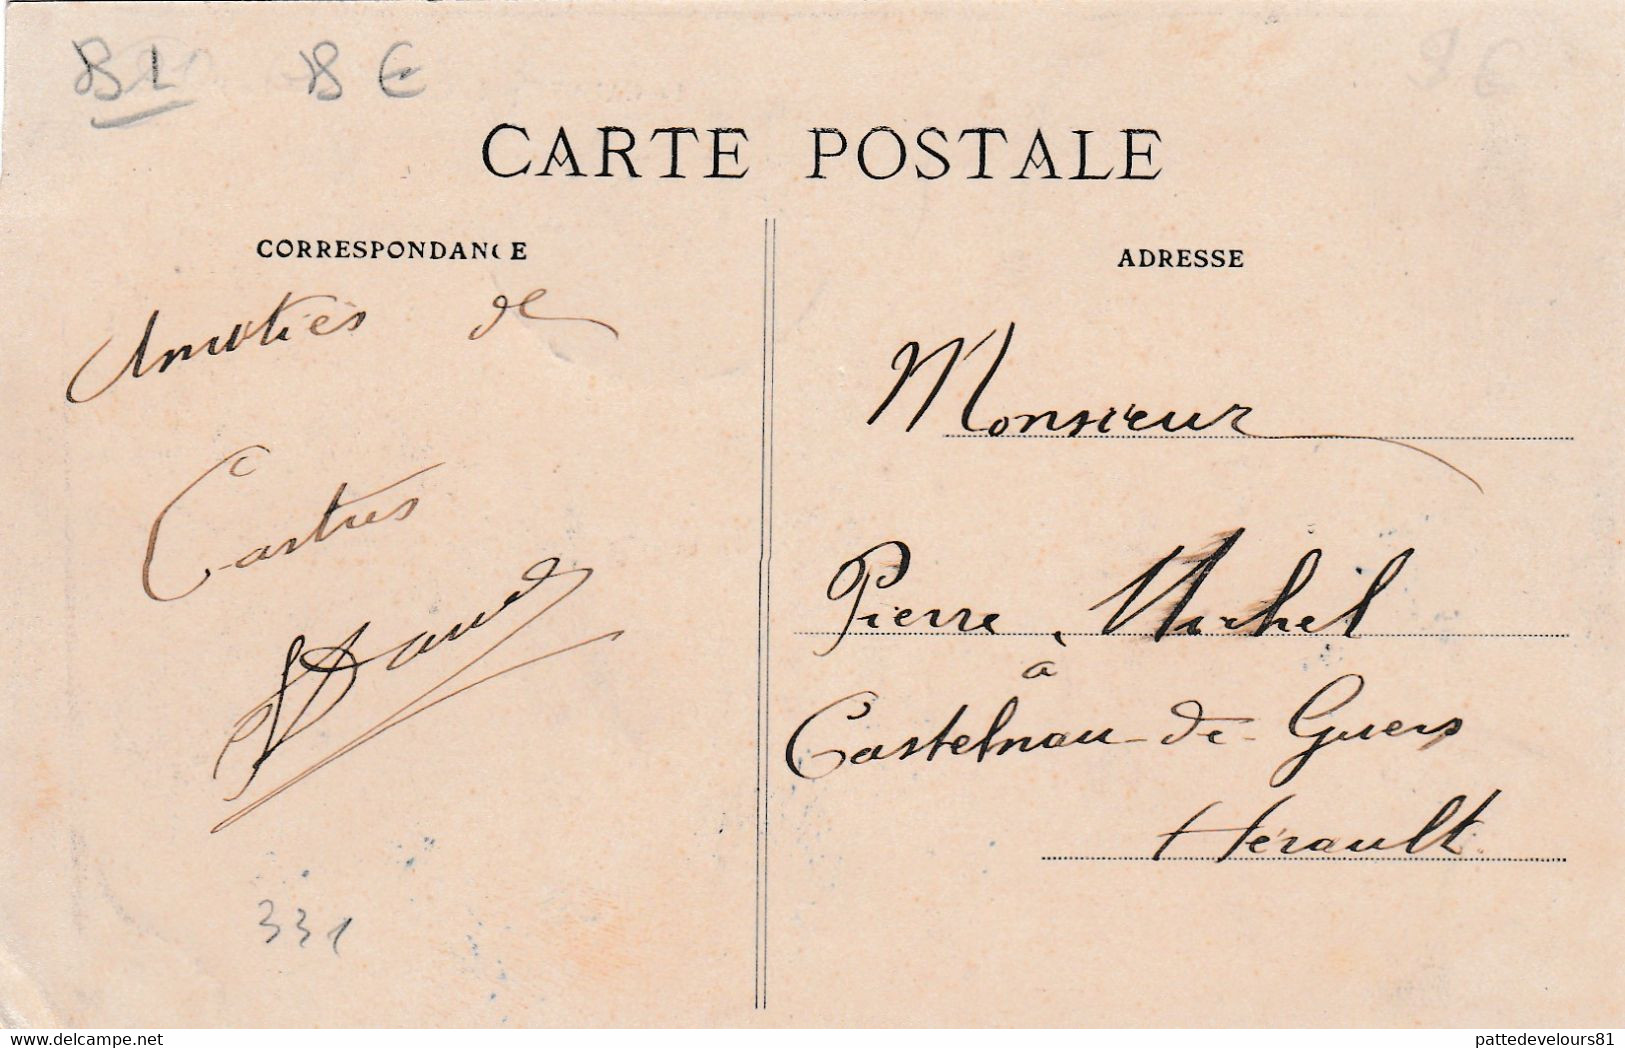 B1 B €
CARTE POSTALE
CORRESPONDANCE
ADRESSE
Amitiés de
Castres
331
Monsieur
Pierre Michel
à
Castelnau-de-Guers
Hérault
www.delcampe.net
pattedevelours81